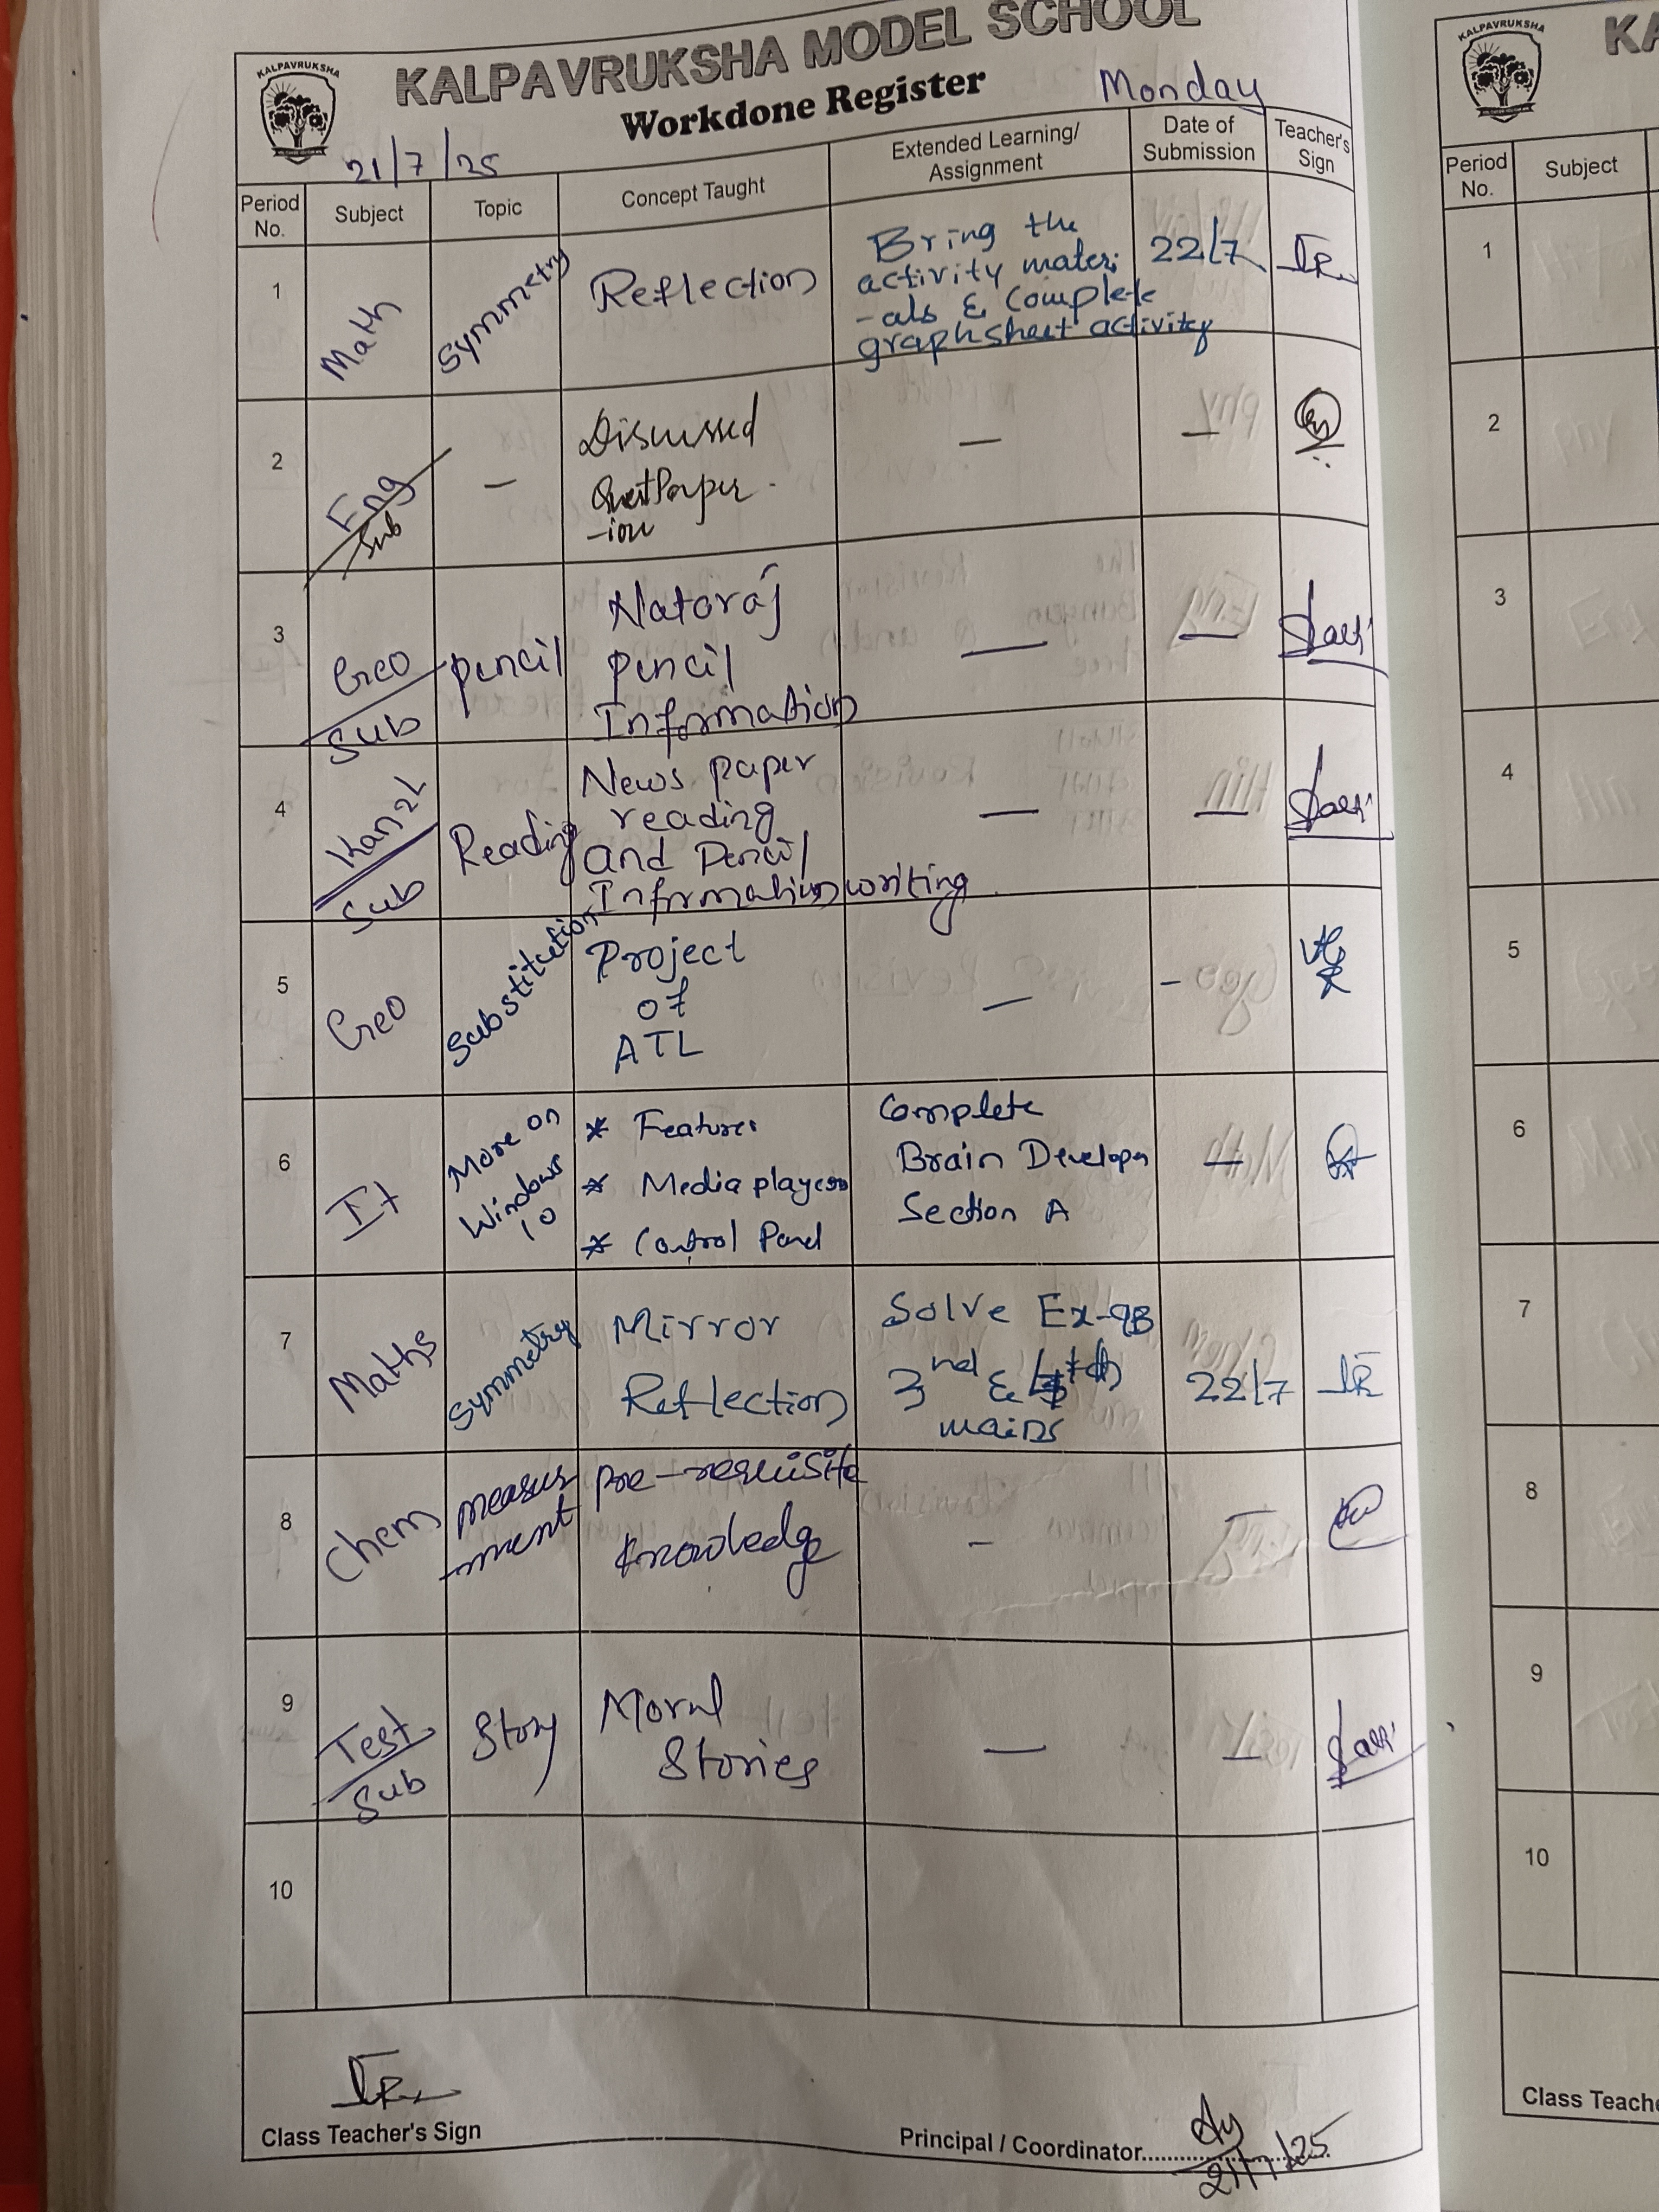 KALPAVRUKSHA
KALPAVRUKSHA MODEL SCHOOL
Workdone Register
Monday
21/7/25
Period No.
Subject
Topic
Concept Taught
Extended Learning/
Assignment
Date of
Submission
Teacher's
Sign
1
Math
Symmetry
Reflection
Bring the
activity materi
-als & complete
graphsheet activity
22/7
2
Eng
Sub
-
Discussed
Quest Paper
-ion
-
-
3
Geo
Sub
pencil
Nataraj
pencil
Information
-
-
4
Kan2L
Sub
Reading
News paper
reading
and Pencil
Information writing
-
-
5
Geo
Substitution
Project
of
ATL
-
-
6
It
More on
Windows
10
* Features
* Media players
* Control Panel
Complete
Brain Developer
Section A
-
7
Maths
Symmetry
Mirror
Reflection
Solve Ex-9B
3nd &
mains
22/7
8
Chem
measur
-ment
Pre-requisite
knowledge
-
-
9
Test
Sub
Story
Moral
Stories
-
-
10
Class Teacher's Sign
Principal / Coordinator
21/7/25
KALPAVRUKSHA
KA
Period
No.
Subject
1
2
3
4
5
6
7
8
9
10
Class Teache